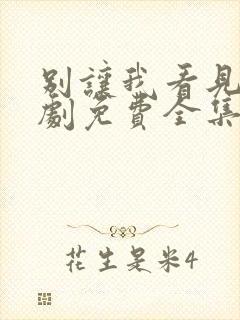 别讓我看見
劇免費全集
花生是米4